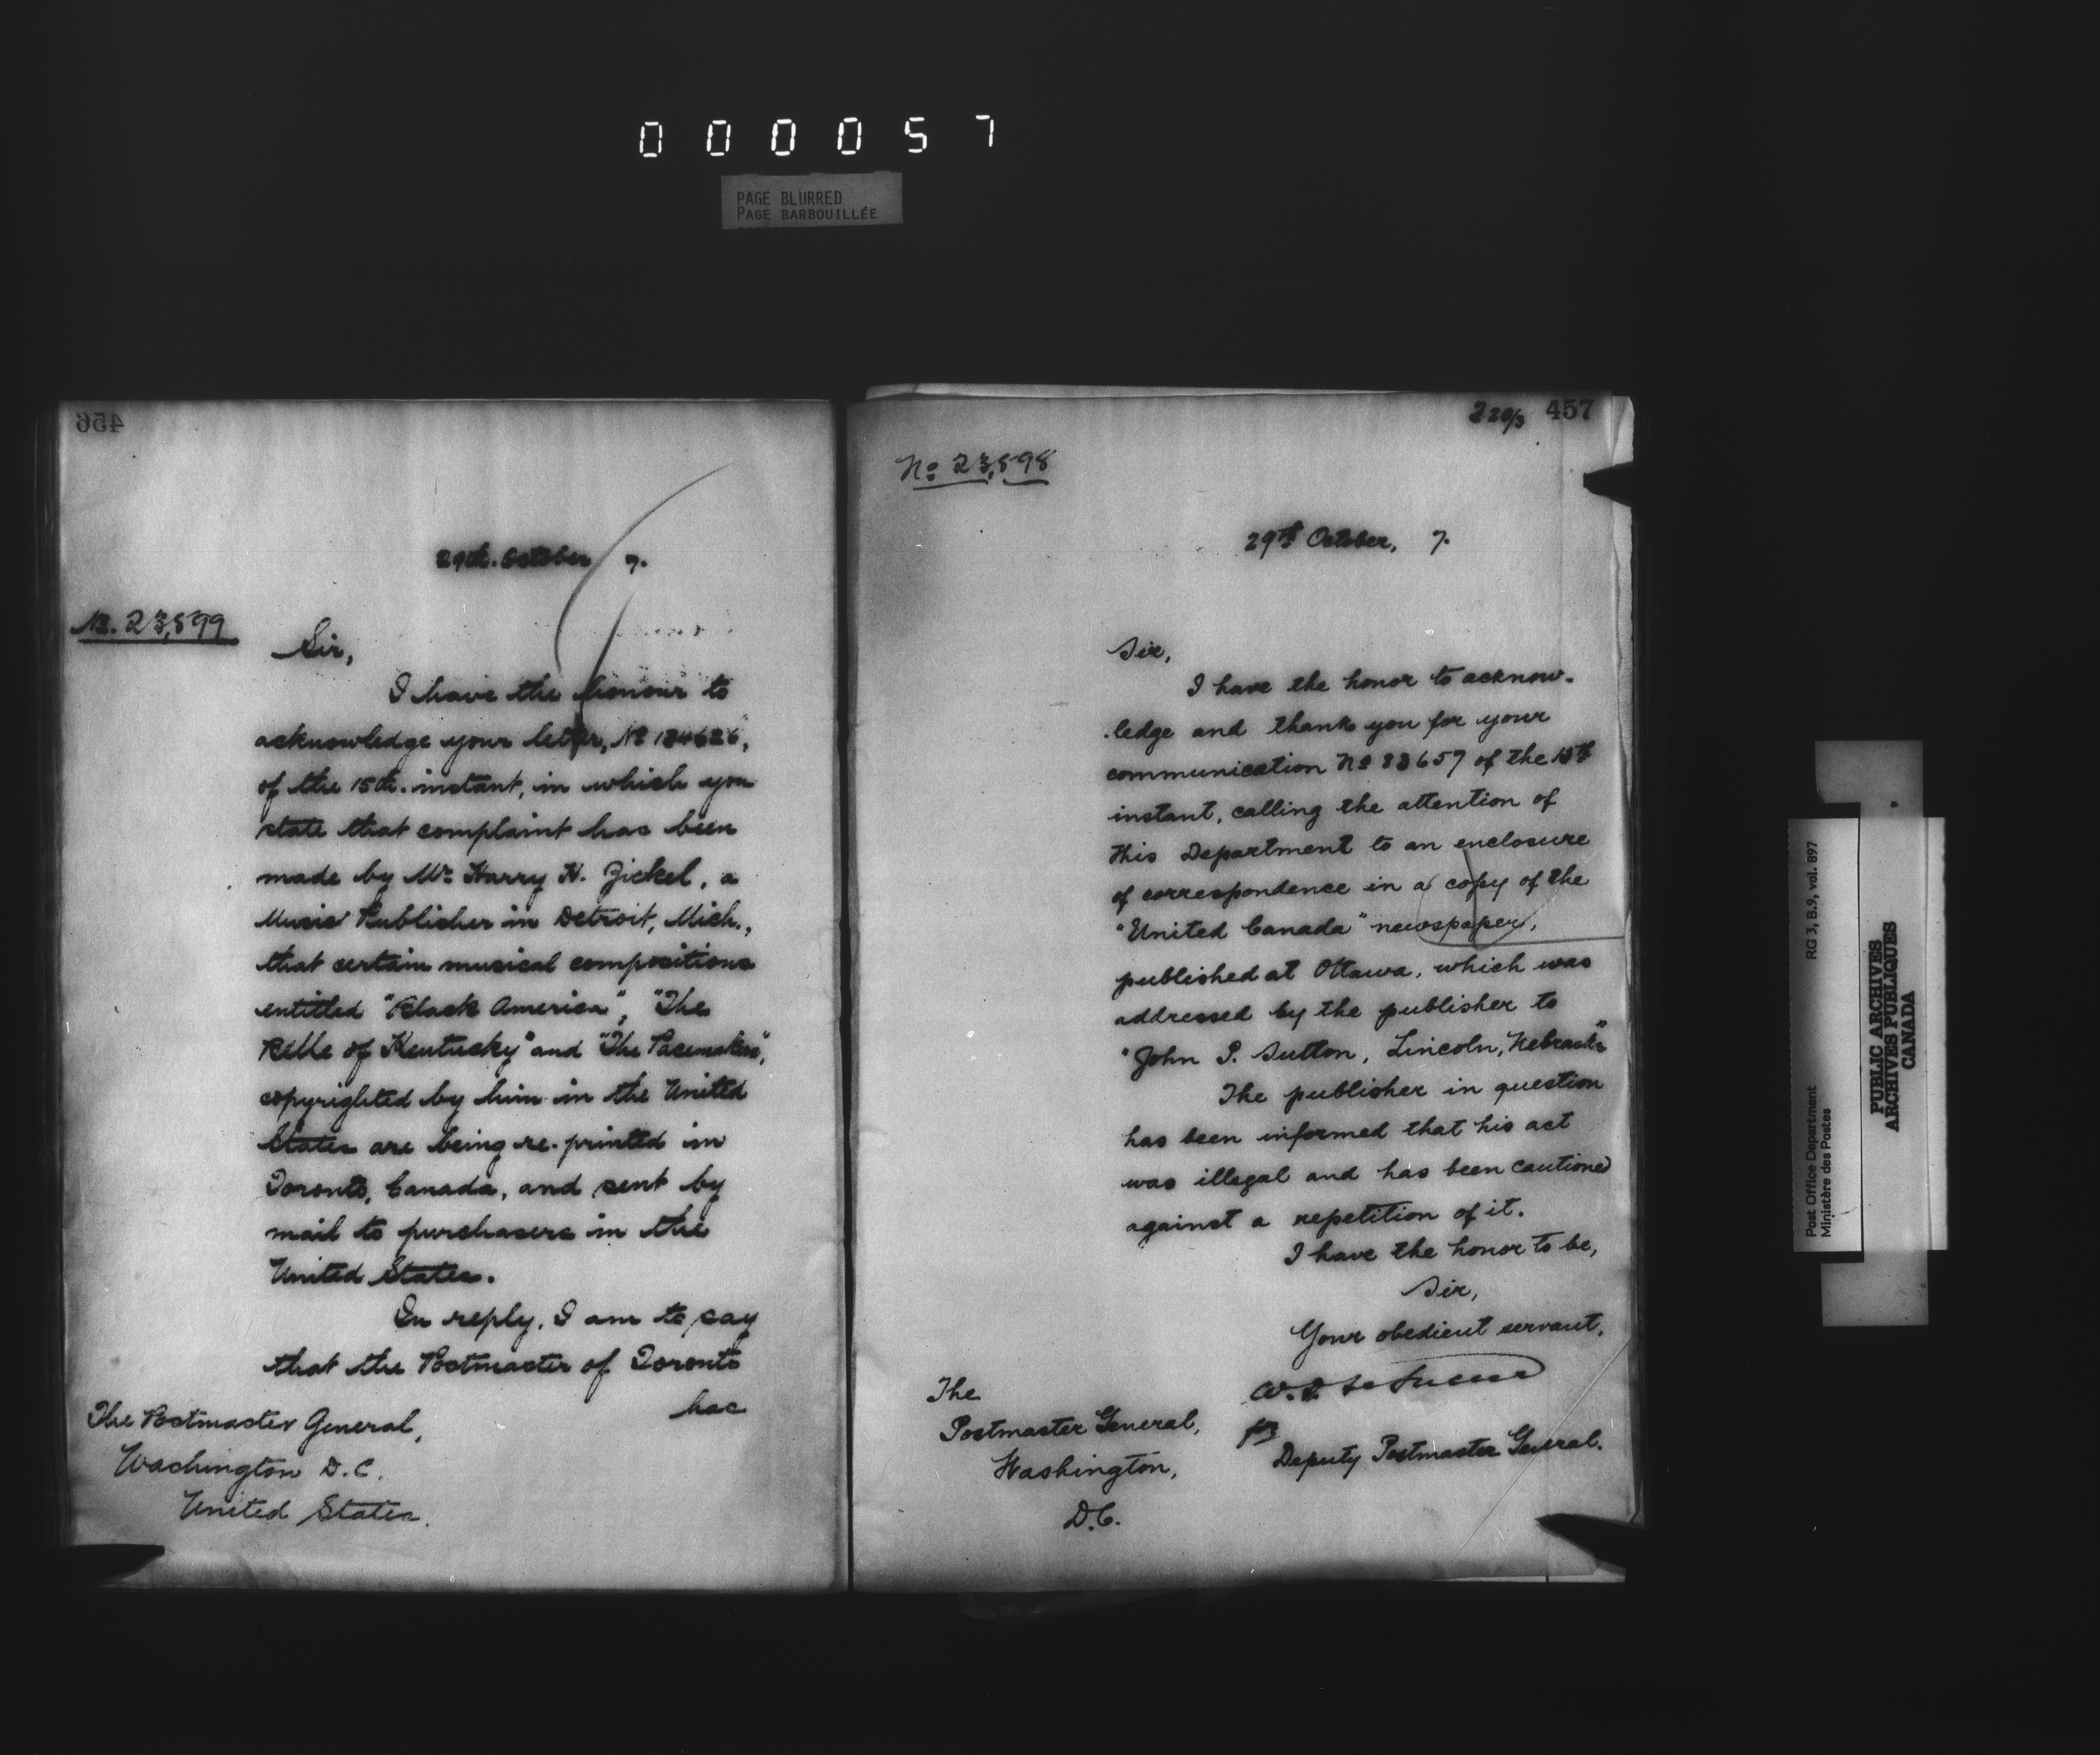 000057
PAGE BLURRED
PAGE BARBOUILLÉE
456
29th. October 7.
No. 23,899
Sir,
I have the honour to
acknowledge your letter, No 124626,
of the 15th. instant, in which you
state that complaint has been
made by Mr. Harry H. Zickel, a
Music Publisher in Detroit, Mich.,
that certain musical compositions
entitled "Black America", "The
Belle of Kentucky" and "The Pacemakers",
copyrighted by him in the United
States are being re-printed in
Toronto, Canada, and sent by
mail to purchasers in the
United States.
In reply, I am to say
that the Postmaster of Toronto
has
The Postmaster General,
Washington D.C.
United States.
220/3 457
No 23,898
29th October, 7.
Sir,
I have the honor to acknow-
-ledge and thank you for your
communication No 83657 of the
instant, calling the attention of
this Department to an enclosure
of correspondence in a copy of the
"United Canada" newspaper,
published at Ottawa, which was
addressed by the publisher to
"John P. Sutton, Lincoln, Nebraska"
The publisher in question
has been informed that his act
was illegal and has been cautioned
against a repetition of it.
I have the honor to be,
Sir,
Your obedient servant,
W. D. LeSueur
for
Deputy Postmaster General.
The
Postmaster General,
Washington,
D.C.
Post Office Department RG 3, B.9, vol. 897
Ministère des Postes
PUBLIC ARCHIVES
ARCHIVES PUBLIQUES
CANADA